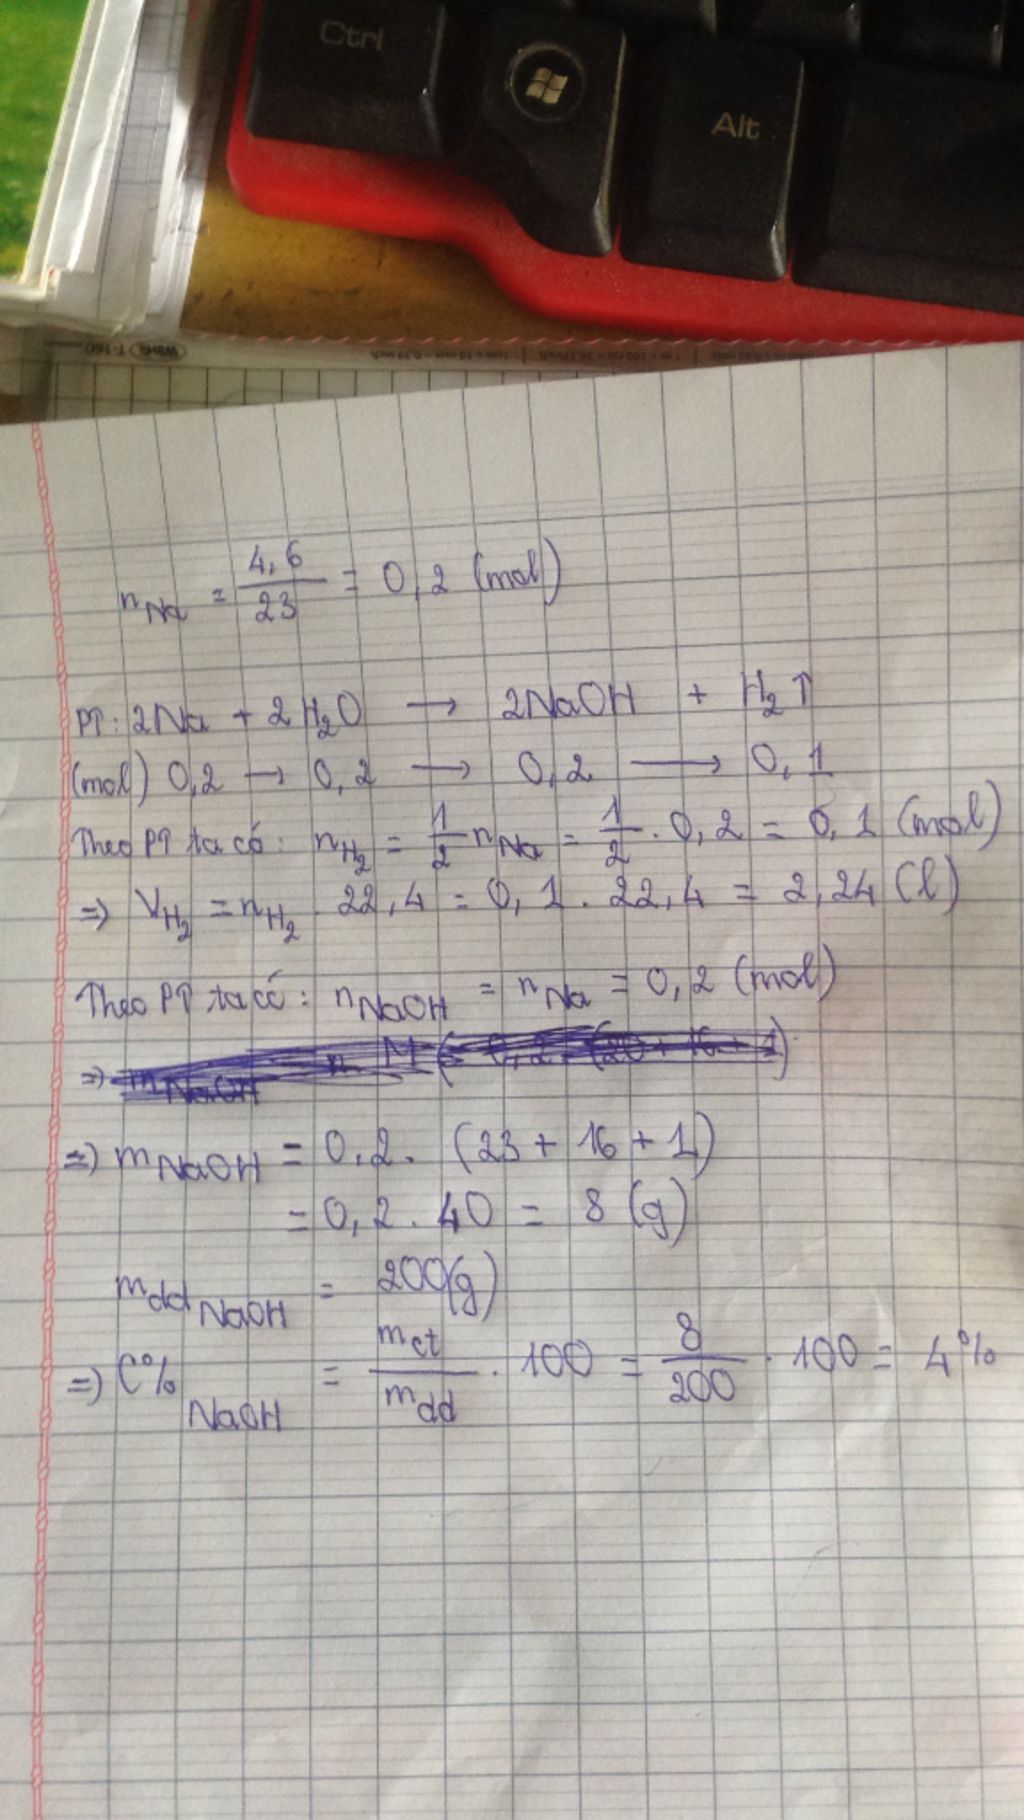 Ctrl
Alt
WinQ T-160
n_Na = 4,6/23 = 0,2 (mol)
PT: 2Na + 2H₂O → 2NaOH + H₂↑
(mol) 0,2 → 0,2 → 0,2 → 0,1
Theo PT ta có: n_H₂ = 1/2 n_Na = 1/2 . 0,2 = 0,1 (mol)
=> V_H₂ = n_H₂ . 22,4 = 0,1 . 22,4 = 2,24 (l)
Theo PT ta có: n_NaOH = n_Na = 0,2 (mol)
=> m_NaOH = 0,2 . (23 + 16 + 1)
= 0,2 . 40 = 8 (g)
m_dd NaOH = 200(g)
=> C%_NaOH = m_ct/m_dd . 100 = 8/200 . 100 = 4%